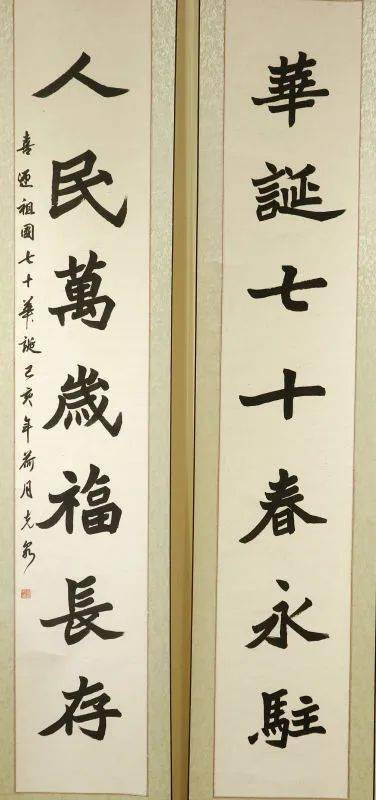 華誕七十春永駐
人民萬歲福長存
喜迎祖國七十華誕己亥年荷月克家